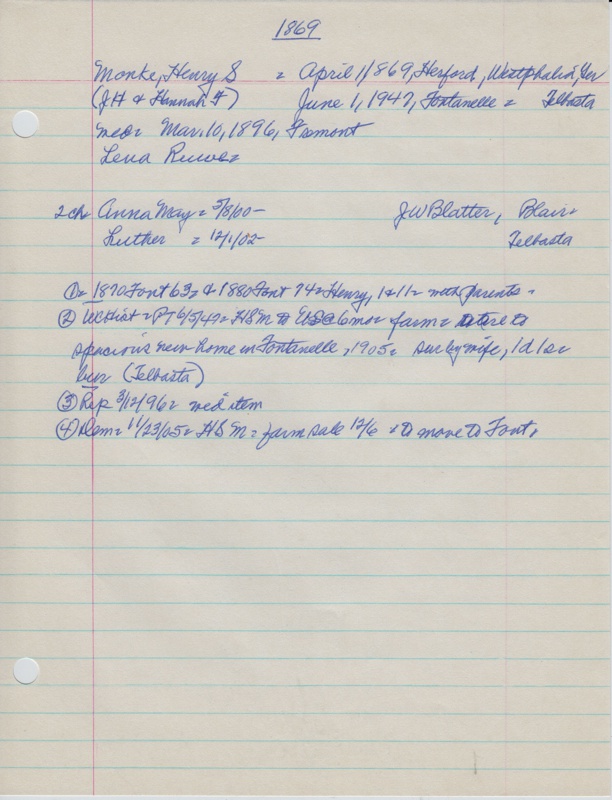 1869
Monke, Henry S = April 1/869, Herford, Westphalia, Ger
(JH & Hannah F) June 1, 1947, Fontanelle = Telbasta
med= Mar. 10, 1896, Fremont
Lena Ruwe=
2ch= Anna May = 5/8/00- J W Blatter, Blair=
Luther = 12/1/02- Telbasta
①= 1870 Font 63= & 1880 Font 74= Henry, 1&11= with parents=
② = PT 6/5/47= HSM to 6mo= farm= retire to
spacious new home in Fontanelle, 1905= sur by wife, 1d 1s=
bur (Telbasta)
③ Rep 3/12/96= wed item
④ Dem= 11/23/05= HSM= farm sale 12/6 = to move to Font.